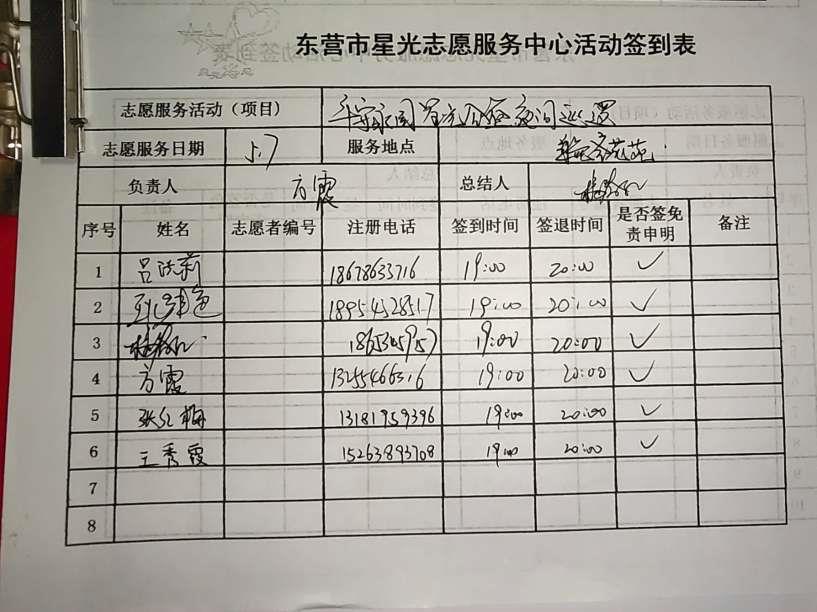 东营市星光志愿服务中心活动签到表
志愿服务活动（项目） 平安家园 星光公益夜间巡逻
志愿服务日期 5.7 服务地点
负责人 方霞 总结人
序号 姓名 志愿者编号 注册电话 签到时间 签退时间 是否签免责申明 备注
1 吕洪莉 18678633716 19:00 20:00 ✓
2 18954328517 19:00 20:00 ✓
3 19:00 20:00 ✓
4 方霞 13255466316 19:00 20:00 ✓
5 张红梅 13181959396 19:00 20:00 ✓
6 王秀霞 15263893708 19:00 20:00 ✓
7
8